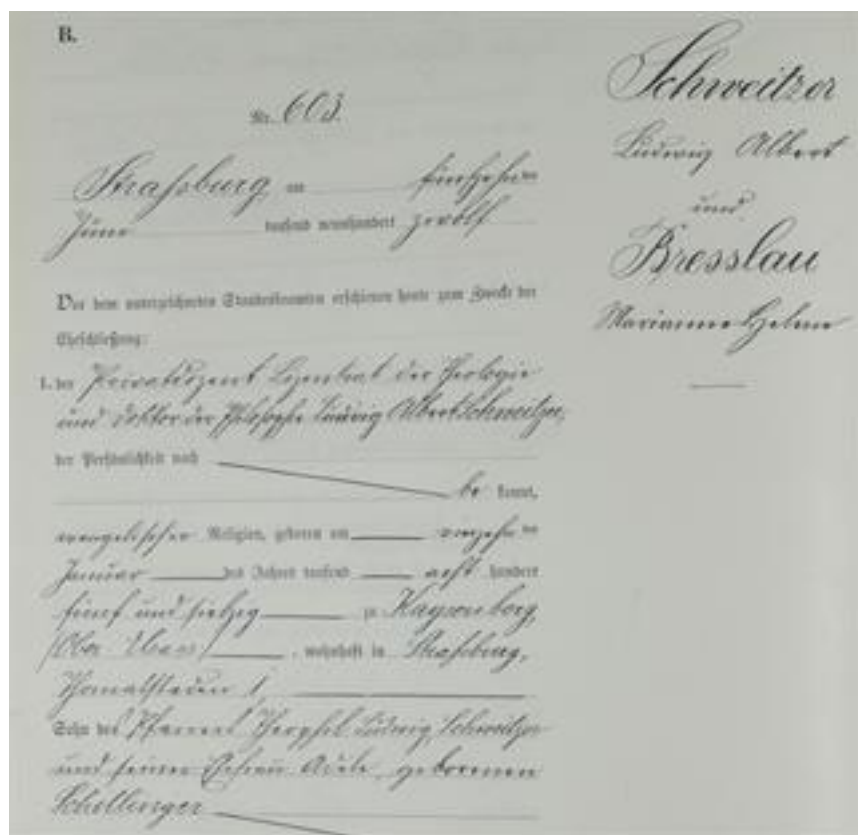 B.
Nr. 603.
Straßburg am fünfzehnten
Juni tausend neunhundert zwölf
Vor dem unterzeichneten Standesbeamten erschienen heute zum Zwecke der
Eheschließung:
1. der Privatdozent Lizentiat der Theologie
und Doktor der Philosophie Ludwig Albert Schweitzer,
der Persönlichkeit nach
be kannt,
evangelischer Religion, geboren am vierzehnten
Januar des Jahres tausend acht hundert
fünf und siebzig zu Kaysersberg,
(Ober Elsass), wohnhaft in Straßburg,
Thomasstaden 1,
Sohn des Pfarrers Ludwig Schweitzer
und seiner Ehefrau Adele, geborenen
Schillinger
Schweitzer
Ludwig Albert
und
Bresslau
Marianne Helene